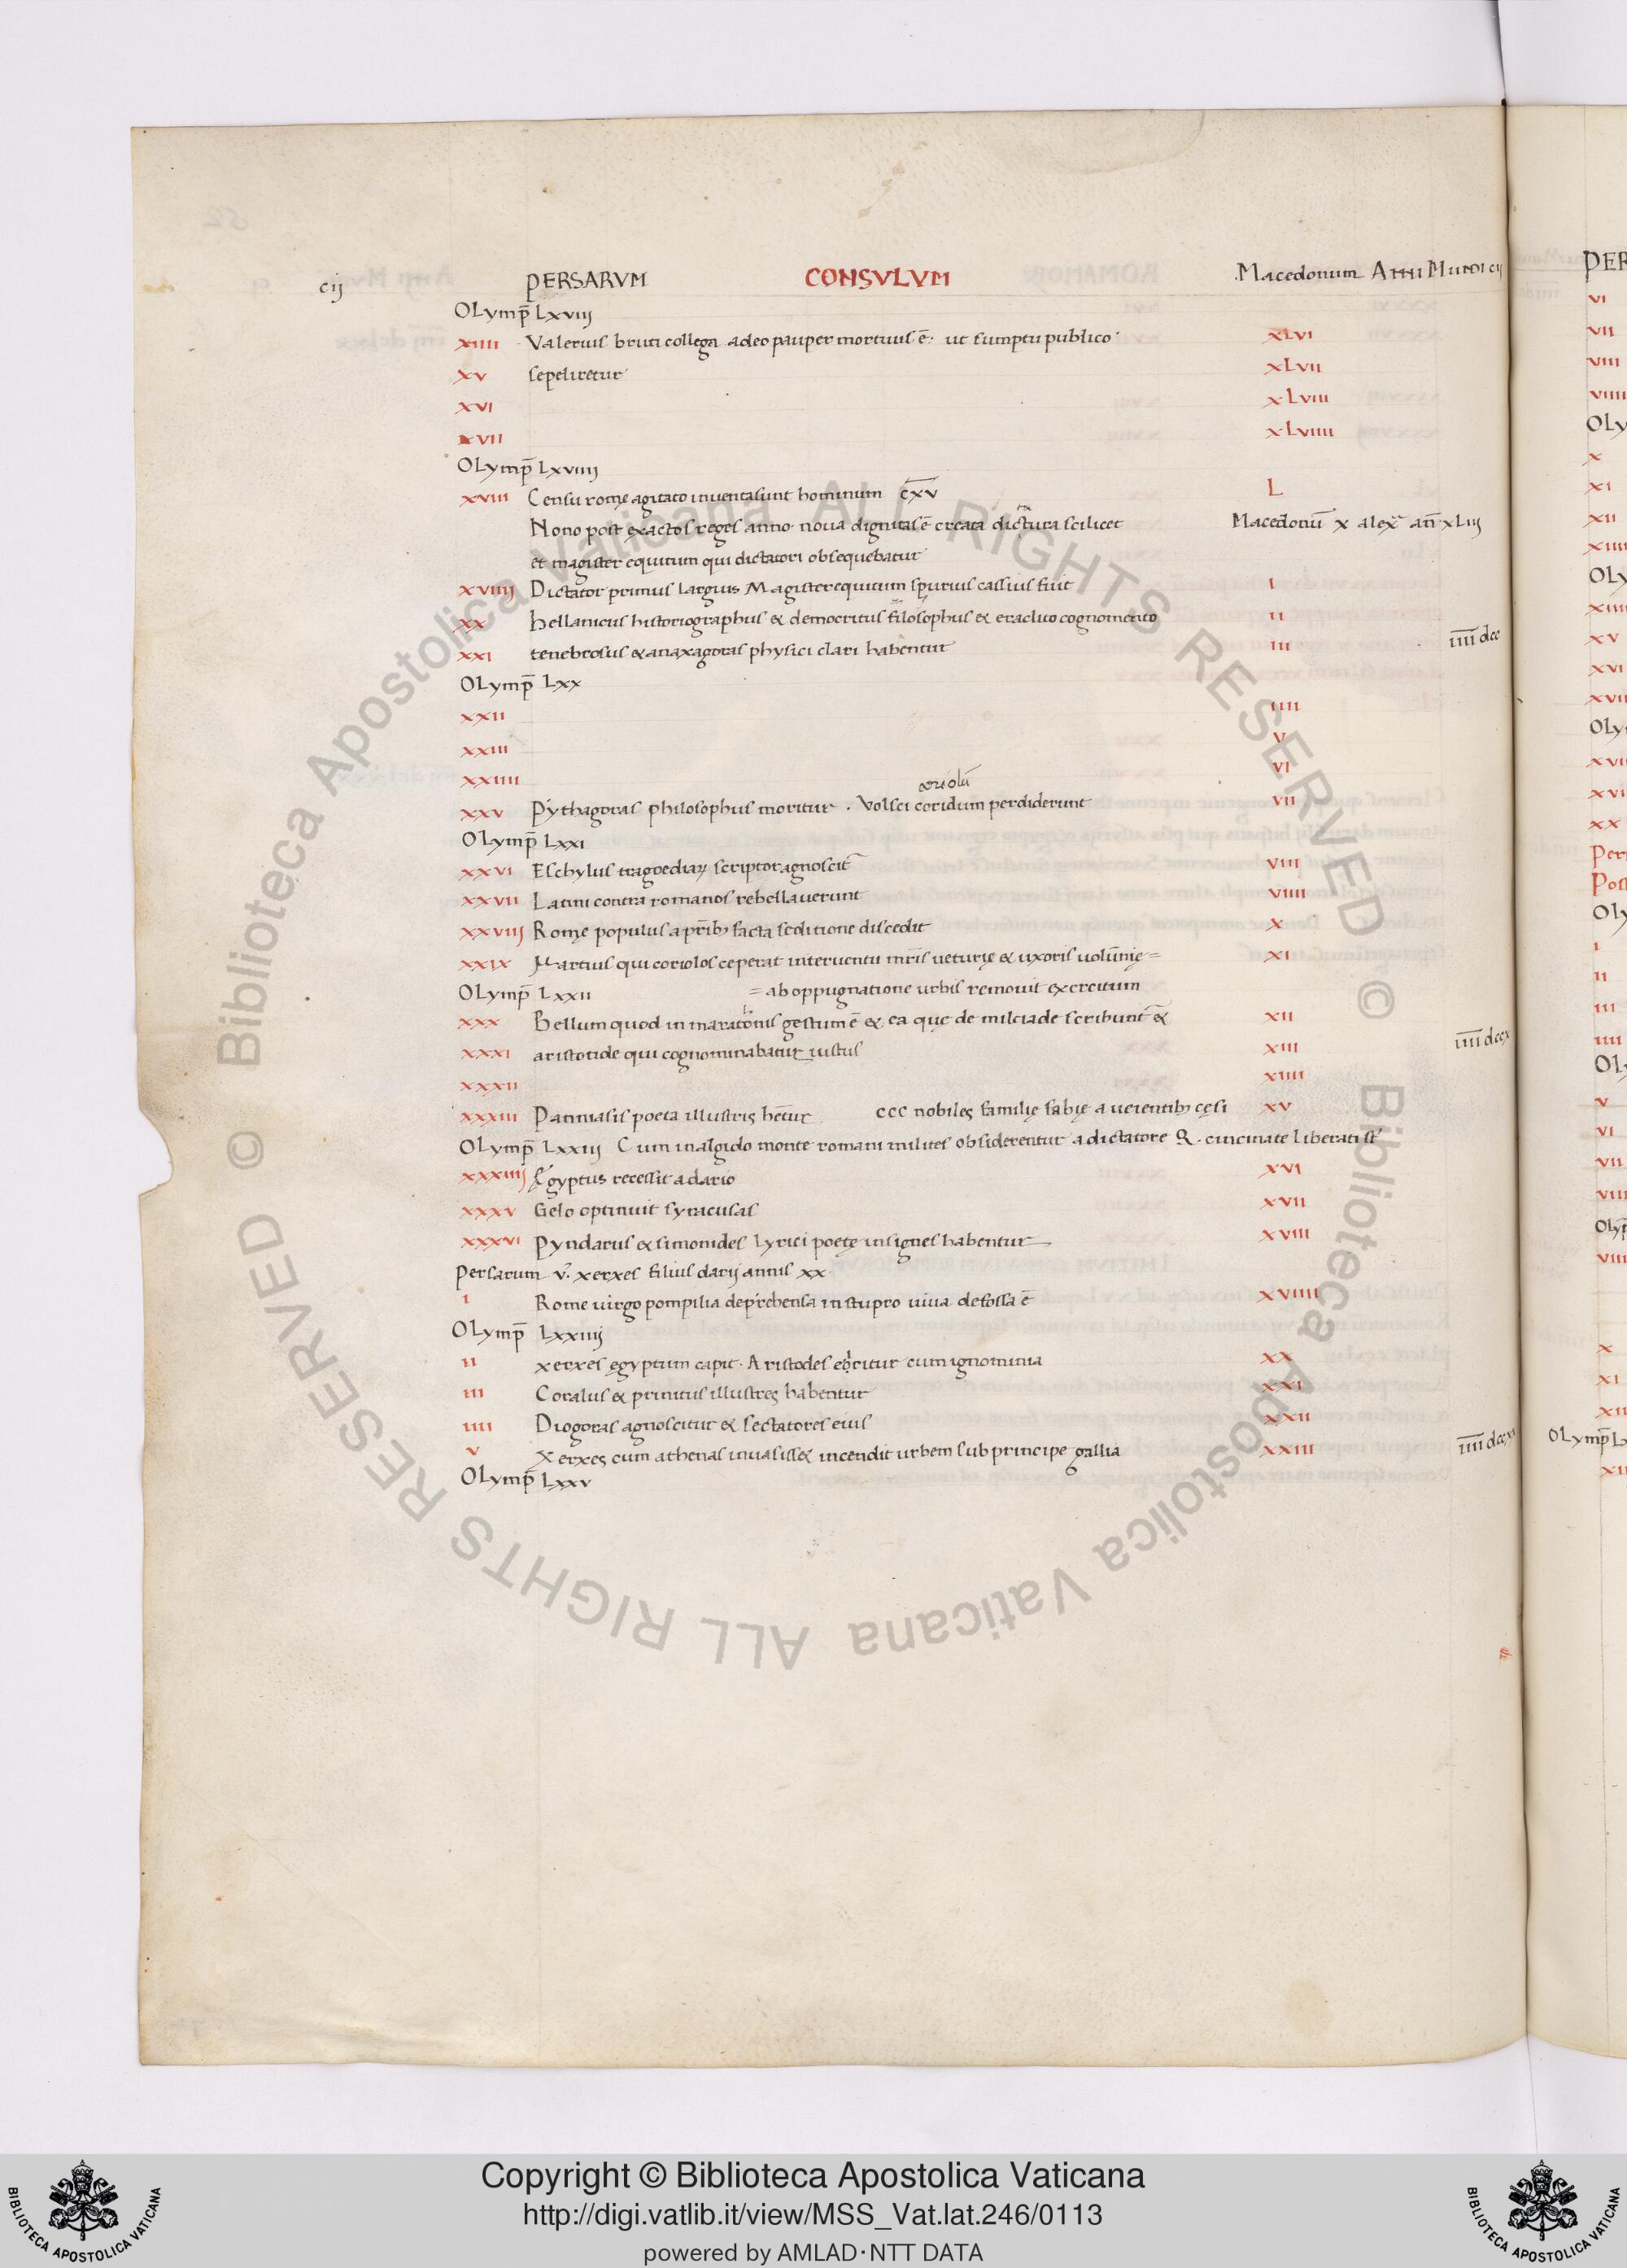 cij PERSARVM CONSVLVM Macedonum Anni Mundi cij
OLymp̄ Lxviij
xiiii Valerius bruti collega adeo pauper mortuus ē ut sumptu publico xLvi
xv sepeliretur xLvii
xvi xLviii
xvii xLviiii
OLymp̄ Lxviiij
xviii Censu romę agitato inventa sunt hominum c̄x̄v̄ L
Nono post exactos reges anno nova dignitas ē creata dictura scilicet Macedonū x alex̄ añ xLiij
ta
et magister equitum qui dictatori obsequebatur
xviiij Dictator primus largius Magister equitum spurius cassius fuit i
xx hellanicus historiographus & democritus filosophus & eraclito cognomento ii
xxi tenebrosus & anaxagoras physici clari habentur iii īīīī dcc
OLymp̄ Lxx
xxii iiii
xxiii v
xxiiii vi
coriolū
xxv Pythagoras philosophus moritur . Volsci coridum perdiderunt vii
OLymp̄ Lxxi
xxvi Eschylus tragoediaꝝ scriptor agnoscit̄ viii
xxvii Latini contra romanos rebellaverunt viiii
xxviij Romę populus a pr̄ib; facta seditione discedit x
xxix Martius qui coriolos ceperat interventu mr̄is veturię & uxoris volūnię = xi
OLymp̄ Lxxii = ab oppugnatione urbis removit exercitum
h
xxx Bellum quod in maratonis gestum ē & ea quę de milciade scribunt̄ & xii
xxxi aristotide qui cognominabatur iustus xiii īīīī dccx
xxxii xiiii
xxxiii Panniasis poeta illustris hētur ccc nobiles familię fabię a veientib; cęsi xv
OLymp̄ Lxxiij Cum in algido monte romani milites obsiderentur a dictatore Q. cincinate liberati st̄
xxxiiij Ęgyptus recessit a dario xvi
xxxv Gelo optinuit syracusas xvii
xxxvi Pyndarus & simonides lyrici poetę insignes habentur xviii
Persarum v. xerxes filius darij annis xx
i Rome virgo pompilia deprehensa in stupro viva defossa ē xviiii
OLymp̄ Lxxiiij
ii xerxes ęgyptum capit. Aristodes eoritur cum ignominia xx
iii Coralus & prinitus illustres habentur xxi
iiii Diogoras agnoscitur & sectatores eius xxii
v Xerxes cum athenas invasiss& incendit urbem sub principe gallia xxiii īīīī dccxx
OLymp̄ Lxxv
PER
vi
vii
viii
viiii
OLy
x
xi
xii
xiii
OLy
xiiii
xv
xvi
xvii
OLy
xvi
xvi
xx
Per
Post
OLy
i
ii
iii
iiii
OLy
v
vi
vii
viii
OLyp
viii
x
xi
xii
OLymp̄ L
xii
© Biblioteca Apostolica Vaticana ALL RIGHTS RESERVED © Biblioteca Apostolica Vaticana ALL RIGHTS RESERVED
Copyright © Biblioteca Apostolica Vaticana
http://digi.vatlib.it/view/MSS_Vat.lat.246/0113
powered by AMLAD·NTT DATA
BIBLIOTECA APOSTOLICA VATICANA
BIBLIOTECA APOSTOLICA VATICANA